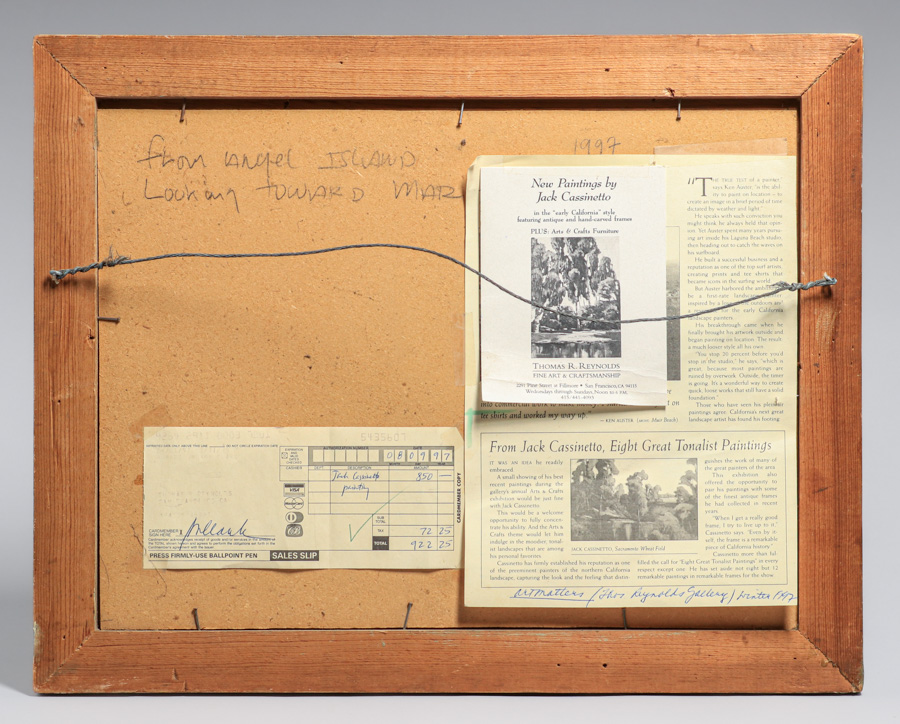 From Angel ISLAND
Looking TOWARD MAR
1997
New Paintings by
Jack Cassinetto
in the "early California" style
featuring antique and hand-carved frames
PLUS: Arts & Crafts Furniture
THOMAS R. REYNOLDS
FINE ART & CRAFTSMANSHIP
2291 Pine Street at Fillmore • San Francisco, CA 94115
Wednesdays through Sundays, Noon to 6 P.M.
"THE TRUE TEST of a painter,"
says Ken Auster, "is the abil-
ity to paint on location – to
create an image in a brief period of time
dictated by weather and light."
He speaks with such conviction you
might think he always held that opin-
ion. Yet Auster spent many years pursu-
ing art inside his Laguna Beach studio,
then heading out to catch the waves on
his surfboard.
He built a successful business and a
reputation as one of the top surf artists,
creating prints and tee shirts that
became icons in the surfing world.
But Auster harbored the
be a first-rate landscape
inspired by a
the early California
landscape painters.
His breakthrough came when he
finally brought his artwork outside and
began painting on location. The result:
a much better style all his own.
"You stop 20 percent before you'd
stop in the studio," he says, "which is
great, because most paintings are
ruined by overwork. Outside, the timer
is going. It's a wonderful way to create
quick, loose works that still have a solid
foundation."
Those who have seen his plein air
paintings agree: California's next great
landscape artist has found his footing.
tee shirts and worked my way up.
— KEN AUSTER
From Jack Cassinetto, Eight Great Tonalist Paintings
IT WAS AN IDEA he readily
embraced.
A small showing of his best
recent paintings during the
gallery's annual Arts & Crafts
exhibition would be just fine
with Jack Cassinetto.
This would be a welcome
opportunity to fully concen-
trate his ability. And the Arts &
Crafts theme would let him
indulge in the moodier, tonal-
ist landscapes that are among
his personal favorites.
Cassinetto has firmly established his reputation as one
of the preeminent painters of the northern California
landscape, capturing the look and the feeling that distin-
JACK CASSINETTO, Sacramento Wheat Field
guishes the work of many of
the great painters of the area.
This exhibition also
offered the opportunity to
pair his paintings with some
of the finest antique frames
he had collected in recent
years.
"When I get a really good
frame, I try to live up to it,"
Cassinetto says. "Even by it-
self, the frame is a remarkable
piece of California history."
Cassinetto more than ful-
filled the call for "Eight Great Tonalist Paintings" in every
respect except one: He has set aside not eight but 12
remarkable paintings in remarkable frames for the show.
ArtMatters / Thos Reynolds Gallery / Winter 1997
5435607
IMPRINTED AREA ONLY ABOVE THIS LINE
DO NOT CIRCLE EXPIRATION DATE
AUTHORIZATION NUMBER
DATE
080997
DEPT.
DESCRIPTION
AMOUNT
Jack Cassinetto
painting
850 —
SUB
TOTAL
TAX
72 25
TOTAL
922 25
CARDMEMBER COPY
CARDMEMBER
SIGN HERE
PRESS FIRMLY-USE BALLPOINT PEN
SALES SLIP